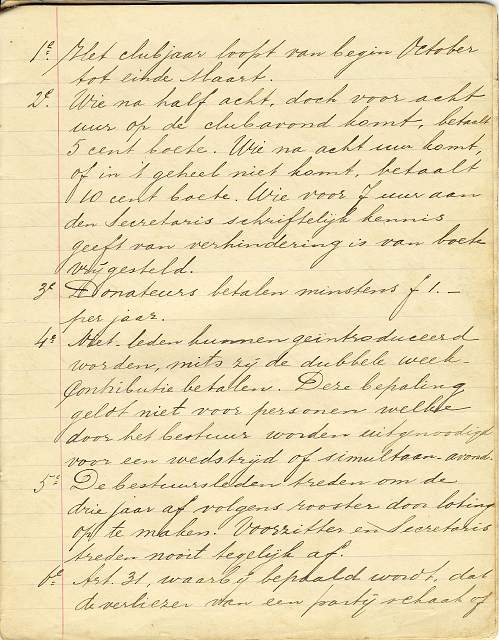 1e. Het clubjaar loopt van begin October
tot einde Maart.
2e. Wie na half acht, doch voor acht
uur op de clubavond komt, betaalt
5 cent boete. Wie na acht uur komt,
of in 't geheel niet komt, betaalt
10 cent boete. Wie voor 7 uur aan
den Secretaris schriftelijk kennis
geeft van verhindering is van boete
vrijgesteld.
3e Donateurs betalen minstens f 1.–
per jaar.
4e Niet-leden kunnen geïntroduceerd
worden, mits zij de dubbele week-
contributie betalen. Deze bepaling
geldt niet voor personen welke
door het bestuur worden uitgenoodigd
voor een wedstrijd of simultaan-avond.
5e. De bestuursleden treden om de
drie jaar af volgens rooster door loting
op te maken. Voorzitter en Secretaris
treden nooit tegelijk af.
6e. Art. 31, waarbij bepaald wordt, dat
de verliezer van een partij schaak of